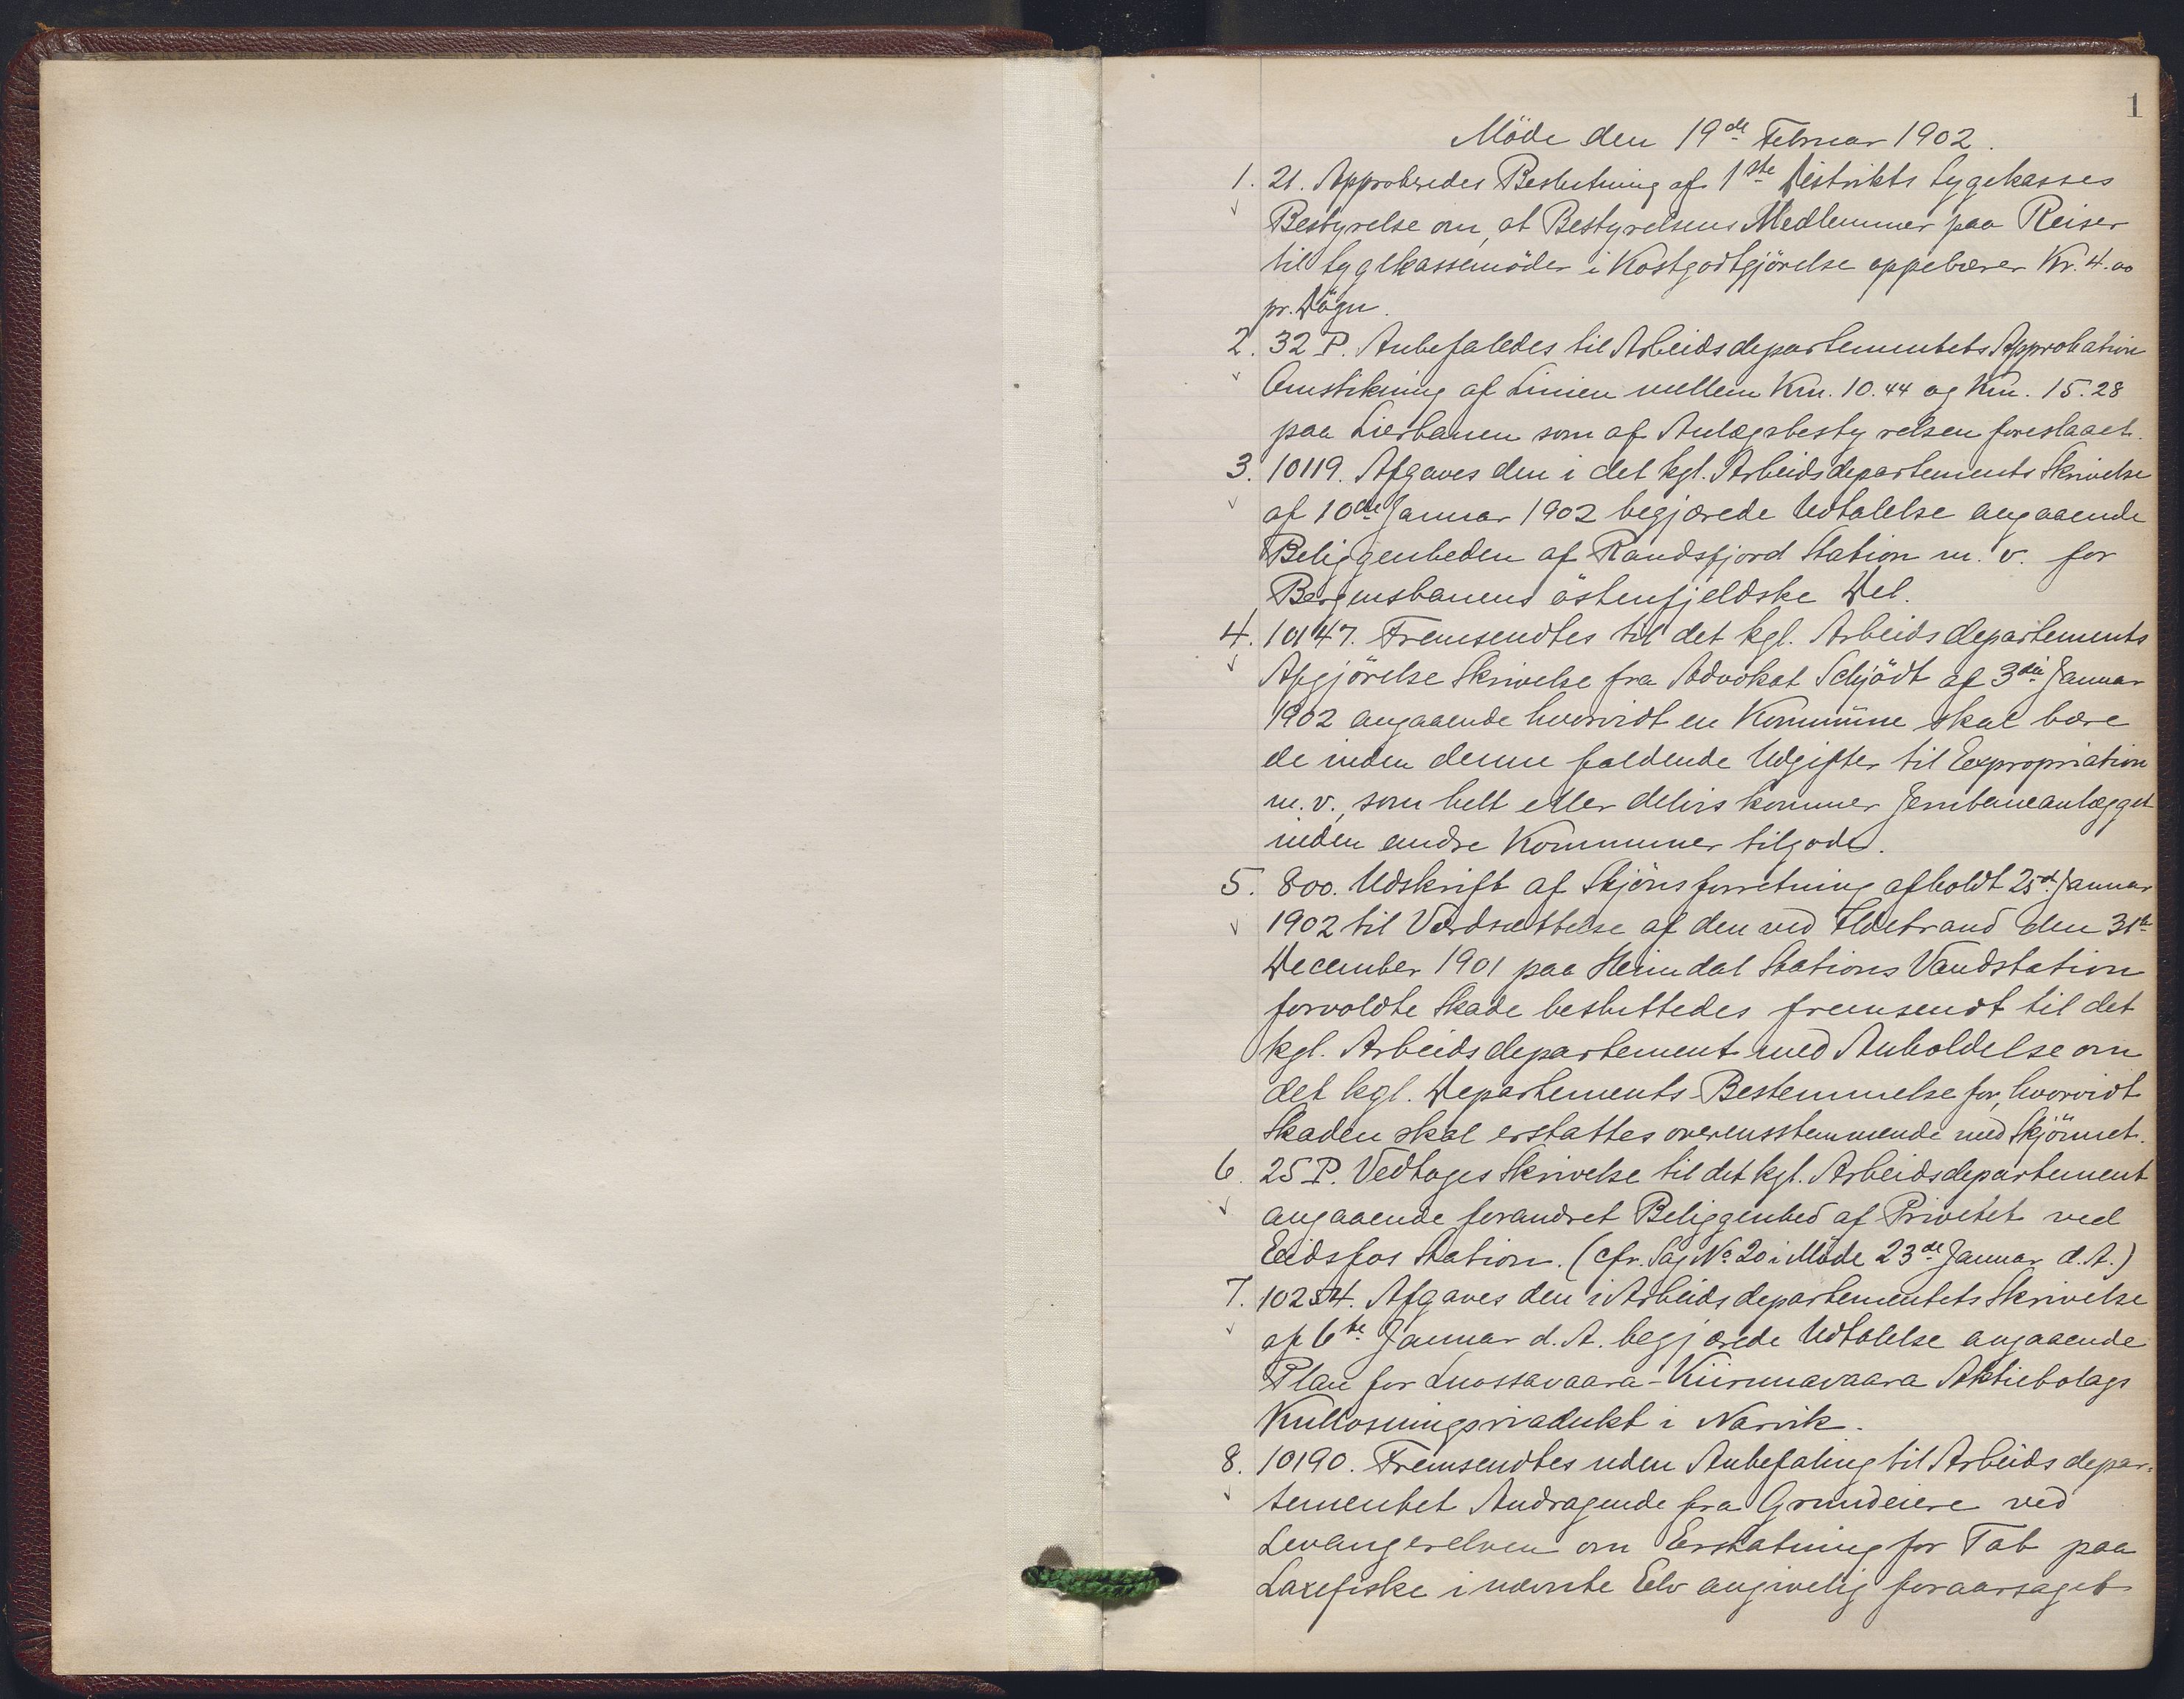 1
Möde den 19de Februar 1902.
1. 21. Approberedes Beslutning af 1ste Distrikts Sygekasses
Bestyrelse om, at Bestyrelsens Medlemmer paa Reiser
til Sygekassemöder i Kostgodtgjörelse oppebærer Kr. 4.00
pr. Dögn.
2. 32 P. Anbefaledes til Arbeidsdepartementets Approbation
Omstikning af Linien mellem Km. 10.44 og Km. 15.28
paa Lierbanen som af Anlægsbestyrelsen foreslaaet.
3. 10119. Afgaves den i det kgl. Arbeidsdepartements Skrivelse
af 10de Januar 1902 begjærede Udtalelse angaaende
Beliggenheden af Randsfjord Station m. v. for
Bergensbanens östenfjeldske Del.
4. 10147. Fremsendtes til det kgl. Arbeidsdepartements
Afgjörelse Skrivelse fra Advokat Schjödt af 3die Januar
1902 angaaende hvorvidt en Kommune skal bære
de inden denne faldende Udgifter til Expropriation
m. v., som helt eller delvis kommer Jernbaneanlægget
inden andre Kommuner tilgode.
5. 800. Udskrift af Skjönsforretning afholdt 25d. Januar
1902 til Værdsættelse af den ved Ildebrand den 31te
December 1901 paa Heimdal Stations Vandstation
forvoldte Skade besluttedes fremsendt til det
kgl. Arbeidsdepartement med Anholdelse om
det kgl. Departements Bestemmelse for, hvorvidt
Skaden skal erstattes overensstemmende med Skjönnet.
6. 25 P. Vedtoges Skrivelse til det kgl. Arbeidsdepartement
angaaende forandret Beliggenhed af Privetet ved
Eidsfos Station. (cfr. Sag No 20 i Möde 23de Januar d. A.)
7. 10254. Afgaves den i Arbeidsdepartementets Skrivelse
af 6te Januar d. A. begjærede Udtalelse angaaende
Plan for Luossavaara-Kiirunavaara Aktiebolags
Kullosningsviadukt i Narvik.
8. 10190. Fremsendtes uden Anbefaling til Arbeidsdepar-
tementet Andragende fra Grundeiere ved
Levangerelven om Erstatning for Tab paa
Laxefiske i nævnte Elv angivelig foraarsaget